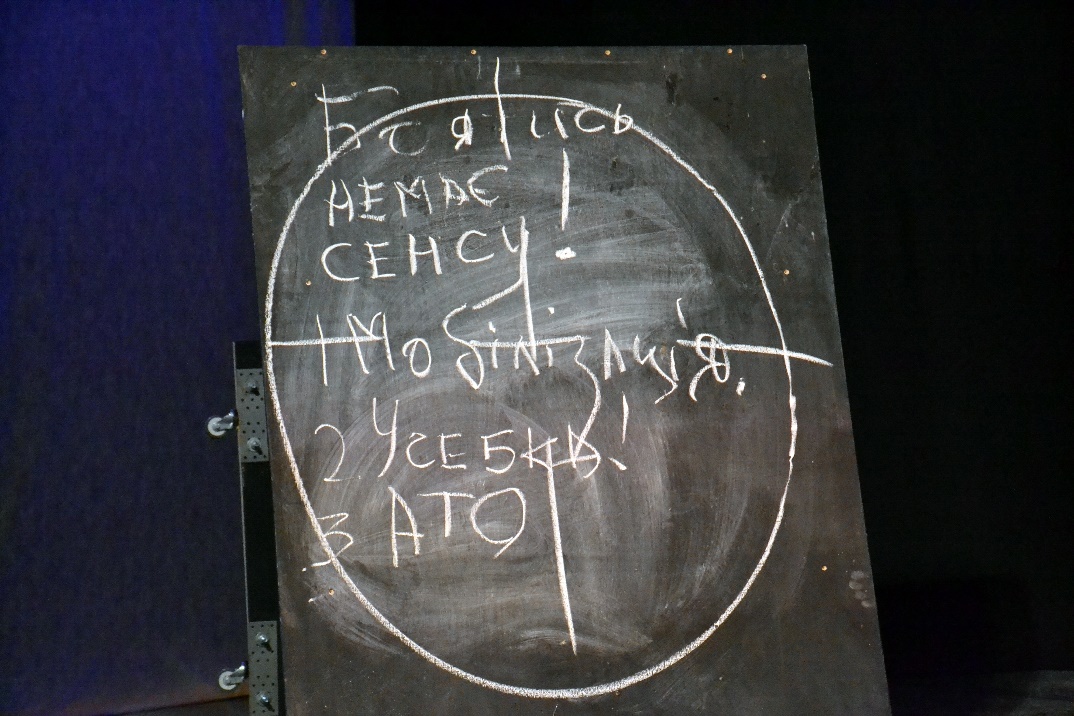 Боятись
НЕМАЄ !
СЕНСУ
1 Мобілізація.
2 УЧЕБКА!
3 АТО